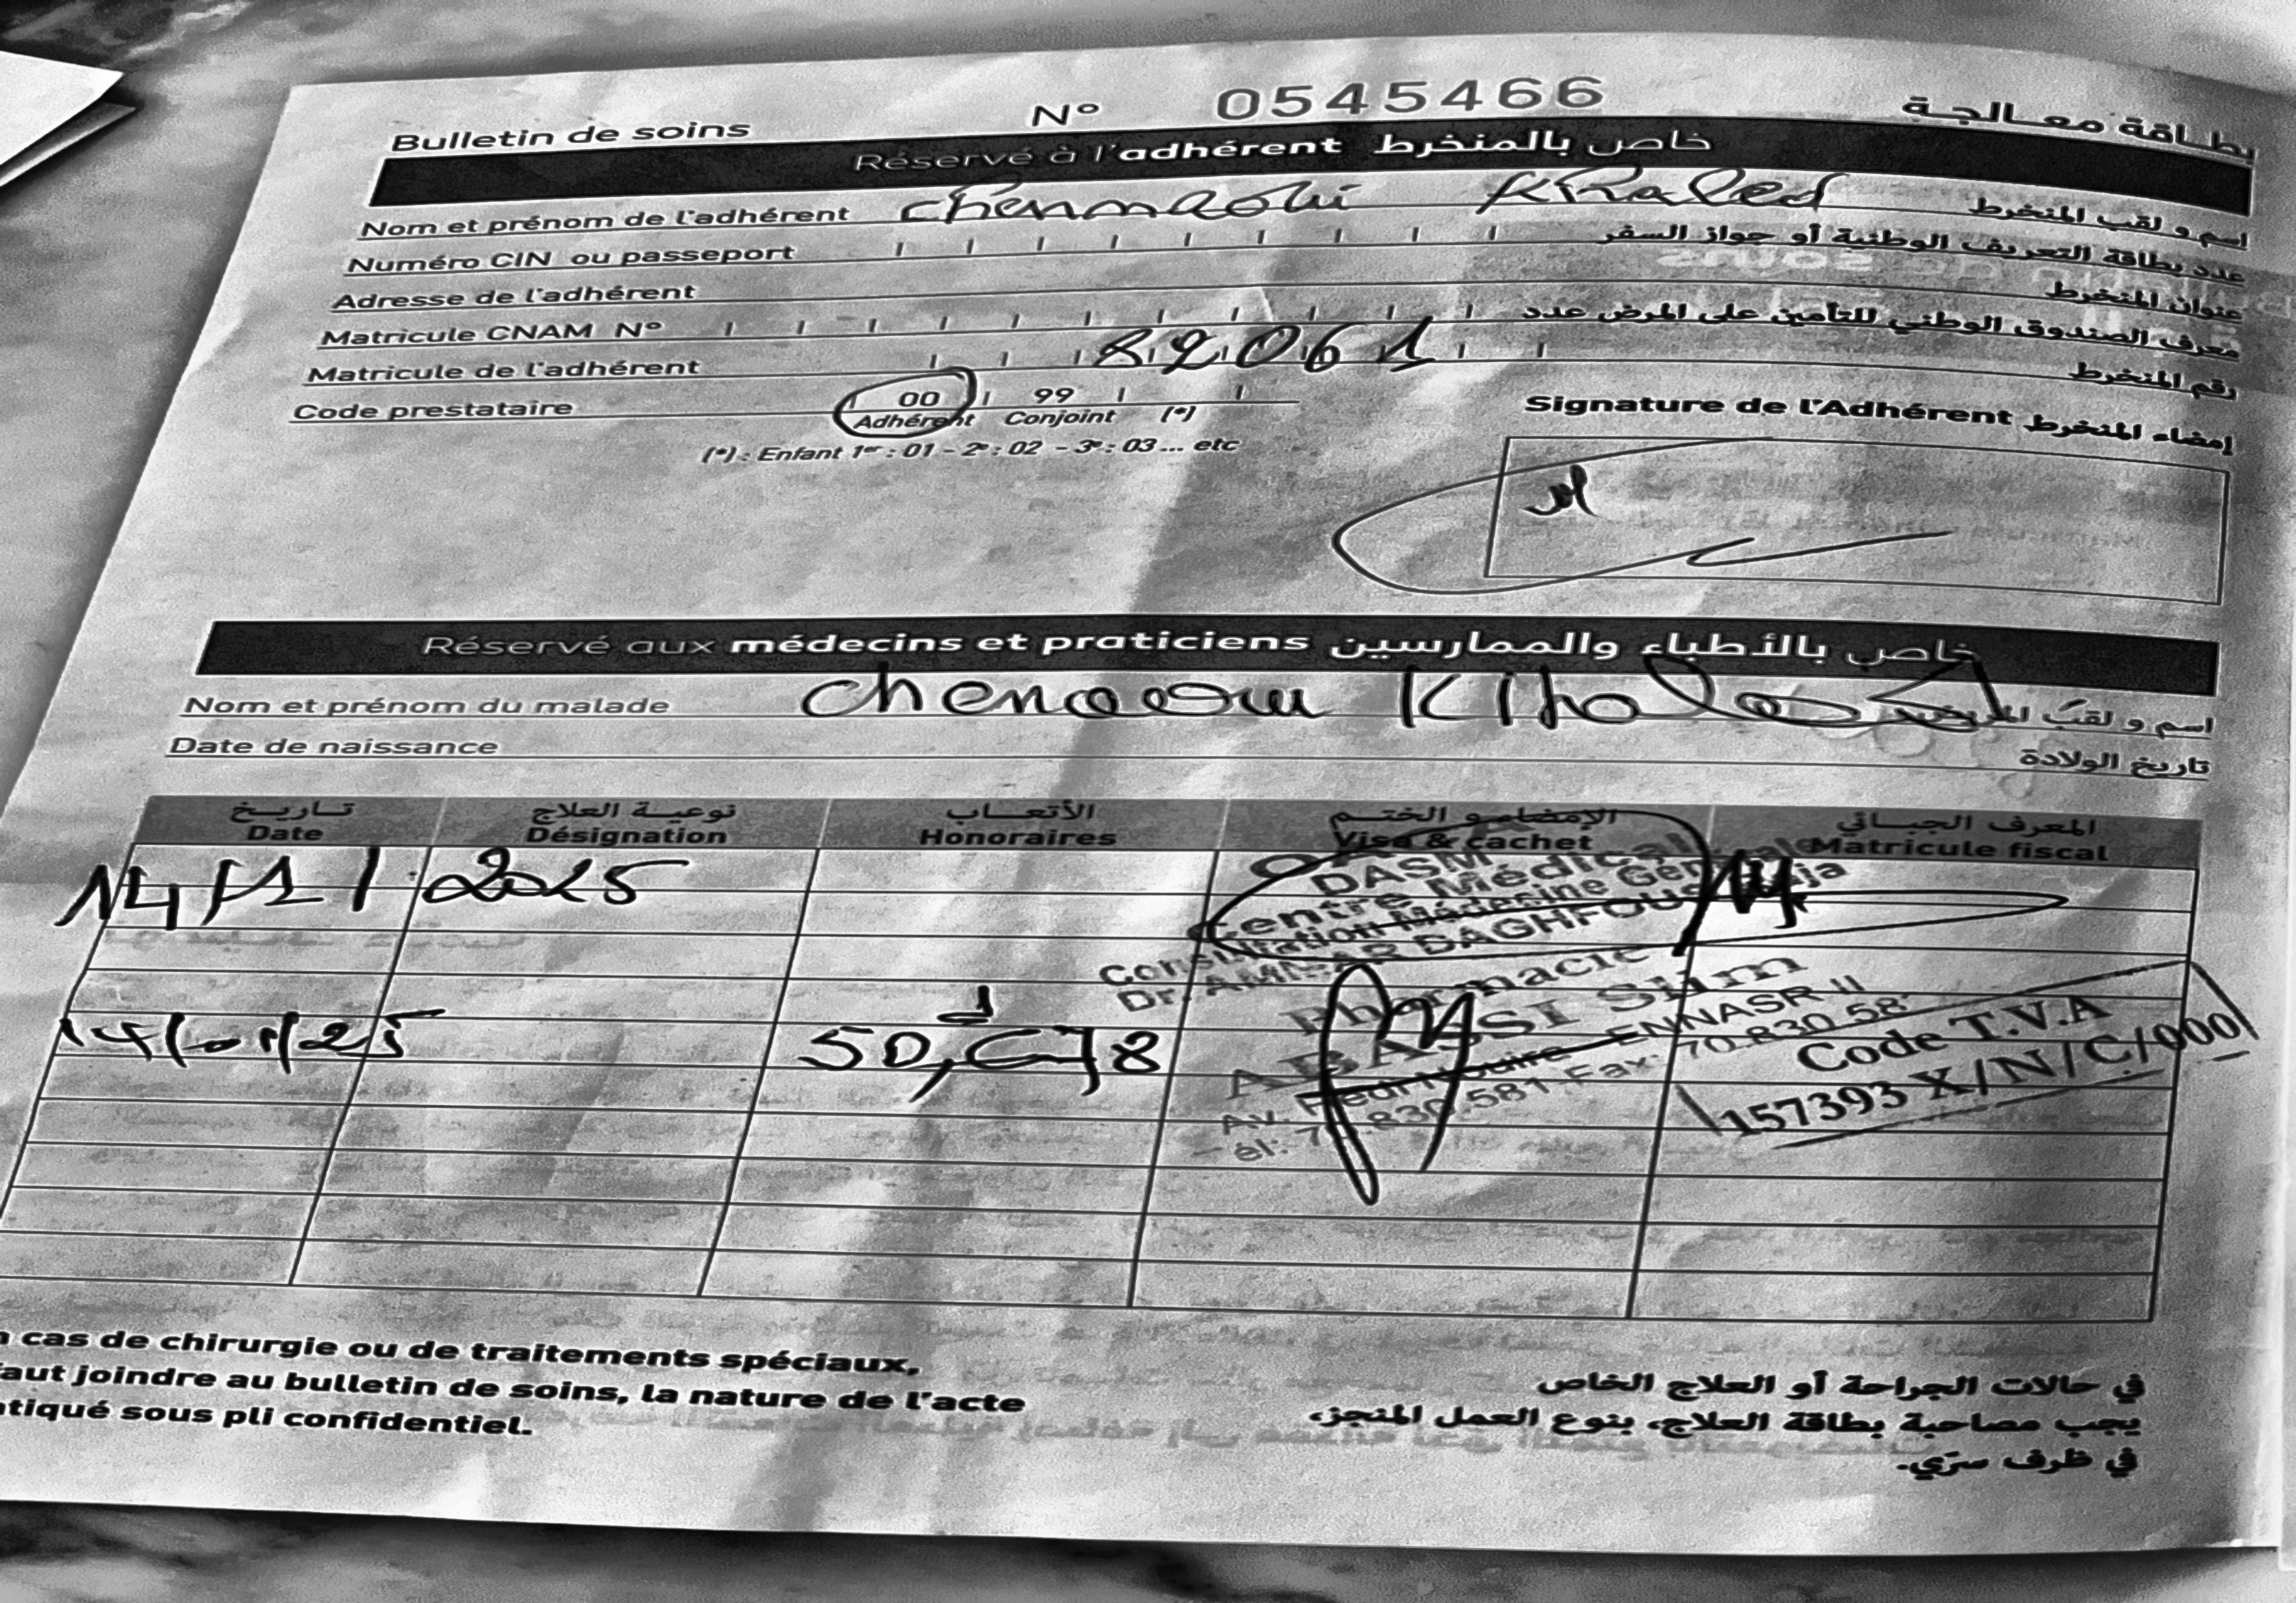 Bulletin de soins N° 0545466 بطاقة معالجة
Réservé à l'adhérent خاص بالمنخرط
Nom et prénom de l'adhérent Chennaoui Khaled اسم و لقب المنخرط
Numéro CIN ou passeport عدد بطاقة التعريف الوطنية أو جواز السفر
Adresse de l'adhérent عنوان المنخرط
Matricule CNAM N° معرف الصندوق الوطني للتأمين على المرض عدد
Matricule de l'adhérent 82061 رقم المنخرط
Code prestataire 00 99
Adhérent Conjoint (*)
(*) : Enfant 1er : 01 - 2e : 02 - 3e : 03 ... etc
Signature de l'Adhérent إمضاء المنخرط
Réservé aux médecins et praticiens خاص بالأطباء والممارسين
Nom et prénom du malade اسم و لقب
Date de naissance تاريخ الولادة
تاريخ نوعية العلاج الأتعاب الإمضاء و الختم المعرف الجبائي
Date Désignation Honoraires Visa & cachet Matricule fiscal
DASM
Centre Médical
Consultation Médecine Générale
Dr. AMMAR DAGHFOUS
Pharmacie
ABASSI Slim
ENNASR II
Fax: 70.830.58
Code T.V.A
157393 X/N/C/000
En cas de chirurgie ou de traitements spéciaux,
faut joindre au bulletin de soins, la nature de l'acte
pratiqué sous pli confidentiel.
في حالات الجراحة أو العلاج الخاص
يجب مصاحبة بطاقة العلاج، بنوع العمل المنجز،
في ظرف سرّي.